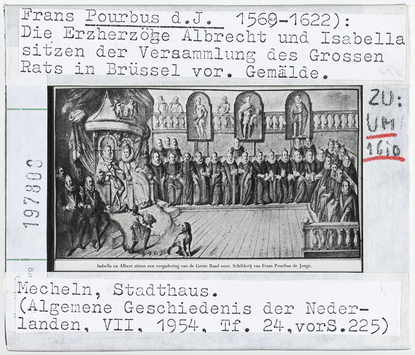 Frans Pourbus d.J. 1569-1622):
Die Erzherzöge Albrecht und Isabella
sitzen der Versammlung des Grossen
Rats in Brüssel vor. Gemälde.
ZU:
UM
1610
197800
Isabella en Albert zitten een vergadering van de Grote Raad voor. Schilderij van Frans Pourbus de Jonge.
Mecheln, Stadthaus.
(Algemene Geschiedenis der Neder-
landen, VII, 1954, Tf. 24,vorS.225)